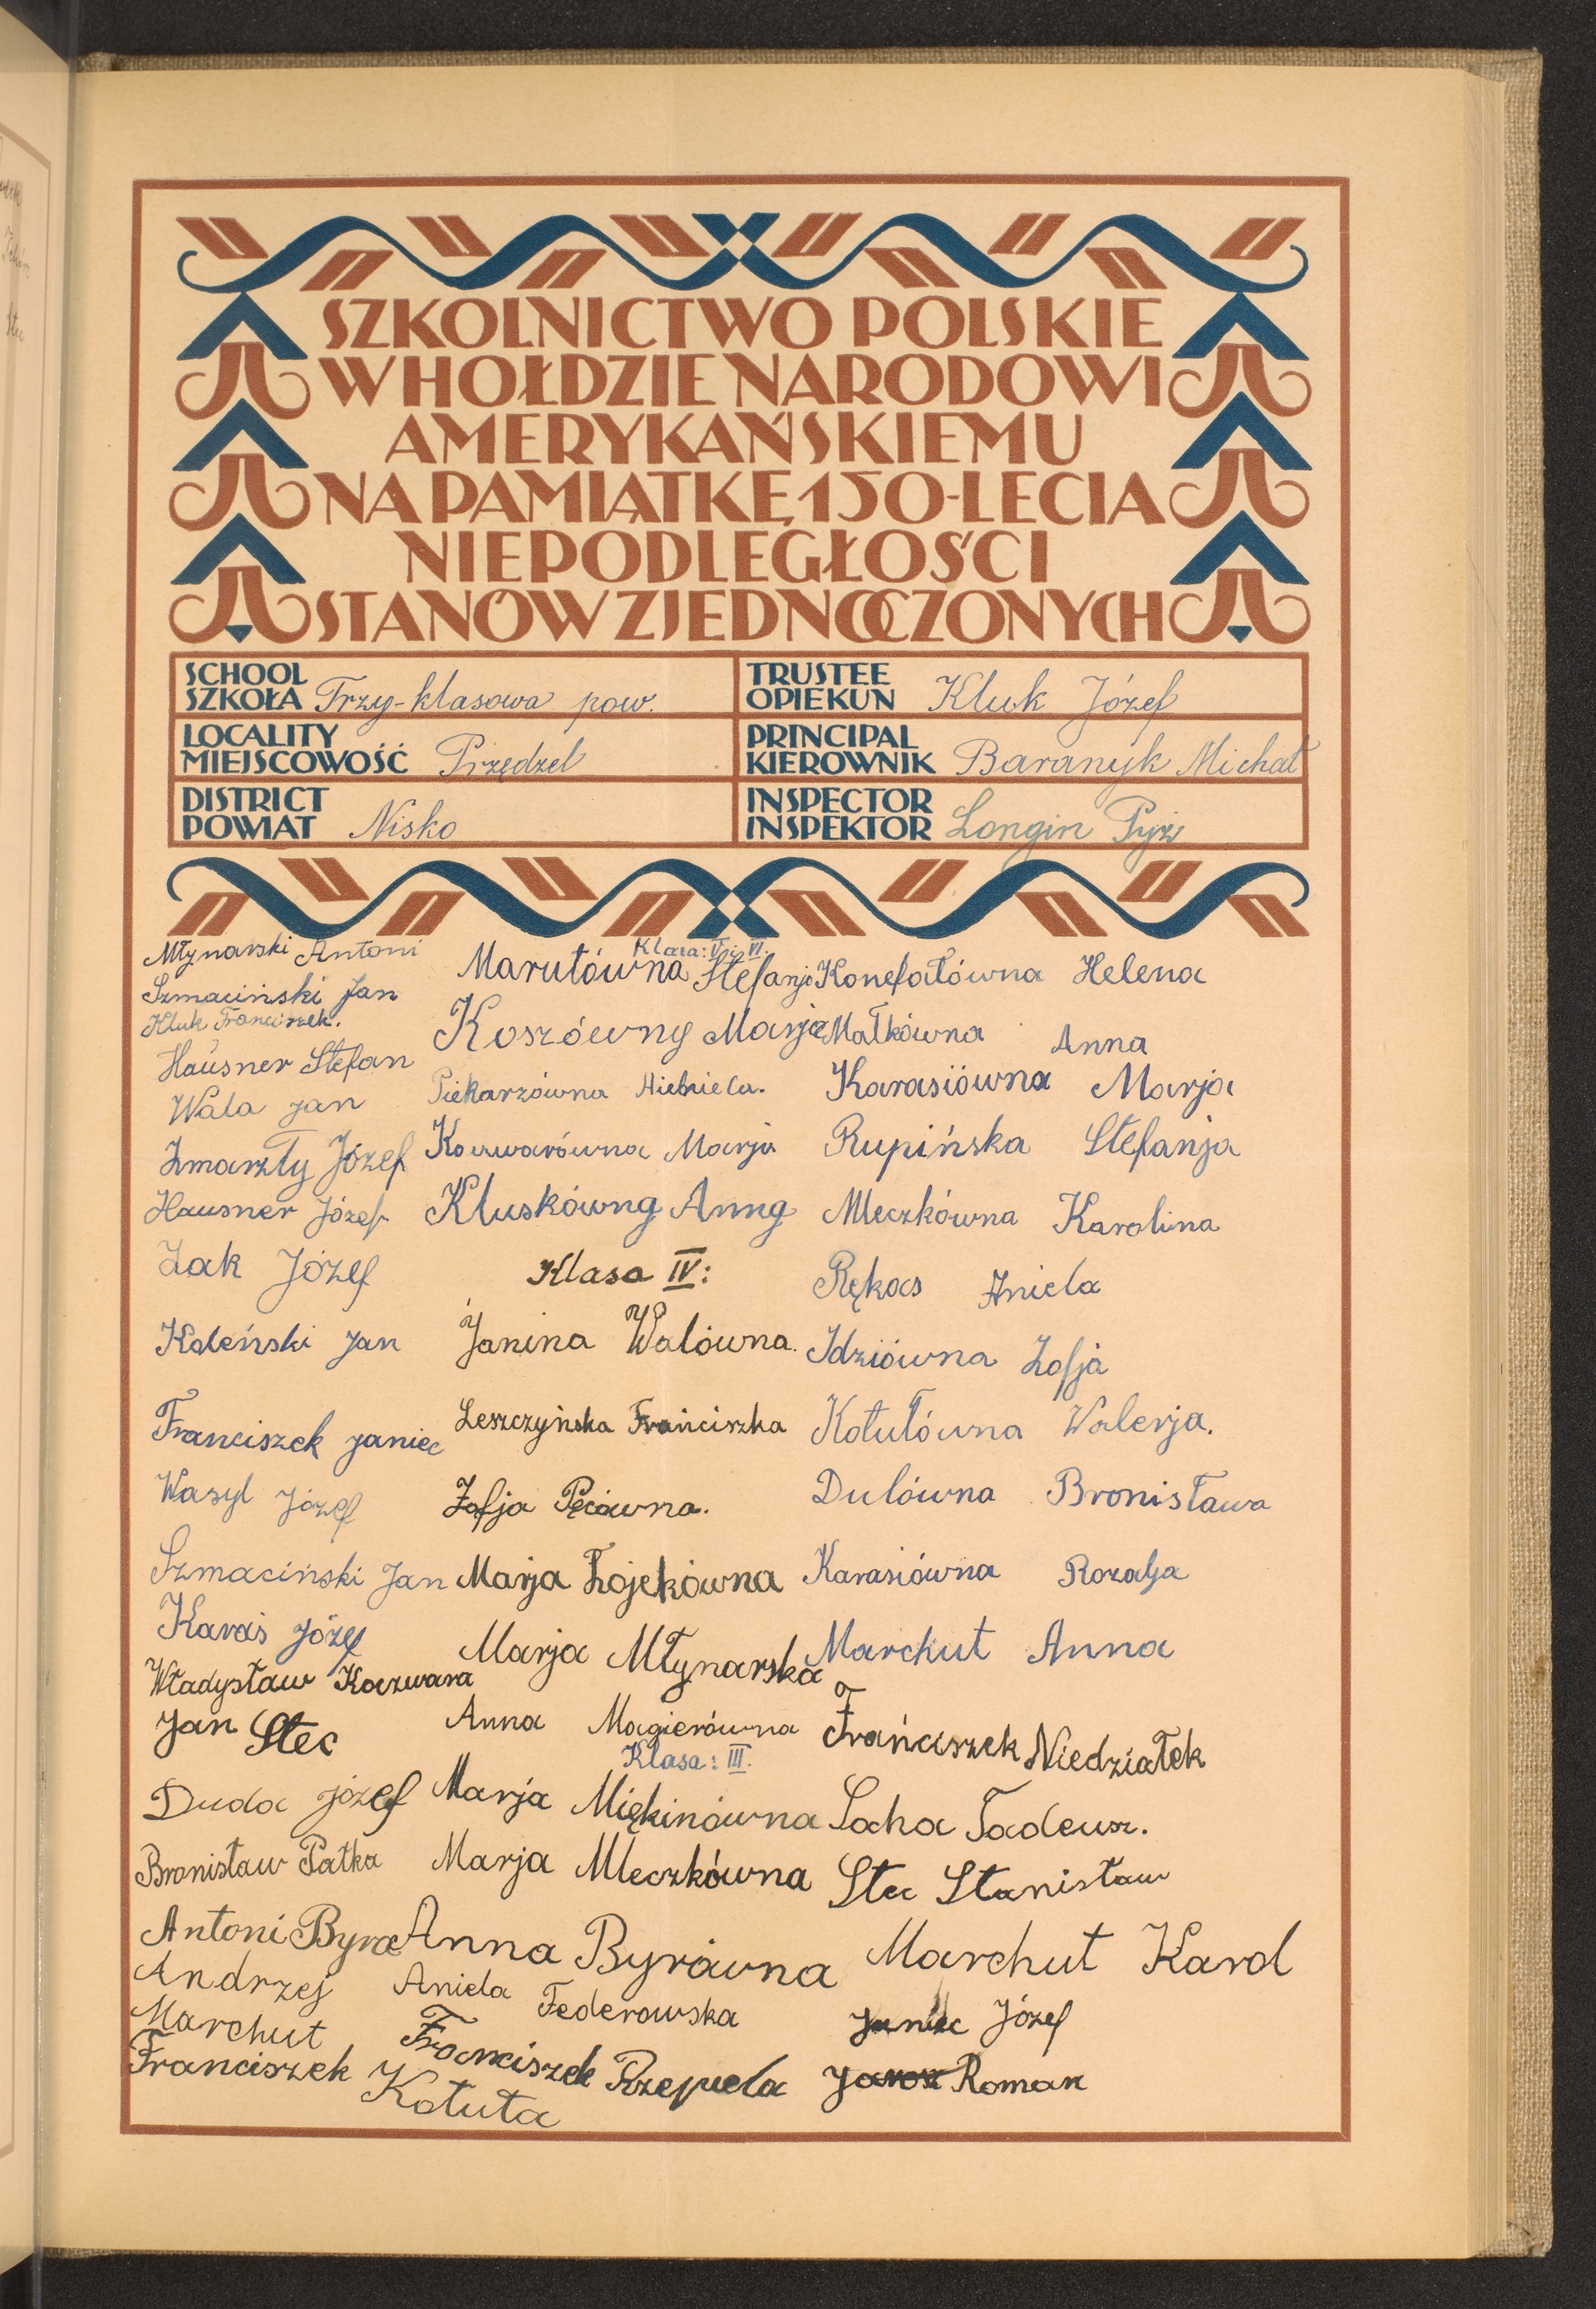 SZKOLNICTWO POLSKIE
W HOŁDZIE NARODOWI
AMERYKAŃSKIEMU
NA PAMIĄTKĘ 150-LECIA
NIEPODLEGŁOŚCI
STANÓW ZJEDNOCZONYCH
SCHOOL
SZKOŁA Trzy-klasowa pow.
TRUSTEE
OPIEKUN Kluk Józef
LOCALITY
MIEJSCOWOŚĆ Przędzel
PRINCIPAL
KIEROWNIK Baranyk Michał
DISTRICT
POWIAT Nisko
INSPECTOR
INSPEKTOR Longin Pyż
Młynarski Antoni
Szmaciński Jan
Kluk Franciszek.
Hausner Stefan
Wala Jan
Zmarzły Józef
Hausner Józef
Żak Józef
Koleński Jan
Franciszek Janiec
Wasyl Józef
Szmaciński Jan
Karaś Józef
Władysław Koczwara
Jan Stec
Duda Józef
Bronisław Pałka
Antoni Byra
Andrzej
Marchut
Franciszek
Kotuła
Klasa: V i VI.
Marutówna Stefanja
Koszówny Marja
Piekarzówna
Koczwarówna Marja
Kluskówna Anna
Klasa IV:
Janina Walówna.
Leszczyńska Franciszka
Zofja Pęcówna.
Marja Łojekówna
Marja Młynarska
Anna Magierówna
Klasa: III.
Marja Miękinówna
Marja Mleczkówna
Anna Byrówna
Aniela Federowska
Franciszek Rzepiela
Konefałówna Helena
Małkówna Anna
Karasiówna Marja
Rupińska Stefanja
Mleczkówna Karolina
Rękas Aniela
Idziówna Zofja
Kotułówna Walerja.
Dulówna Bronisława
Karasiówna Rozalja
Marchut Anna
Frańciszek Niedziałek
Socha Tadeusz.
Stec Stanisław
Marchut Karol
Janiec Józef
Jarosz Roman